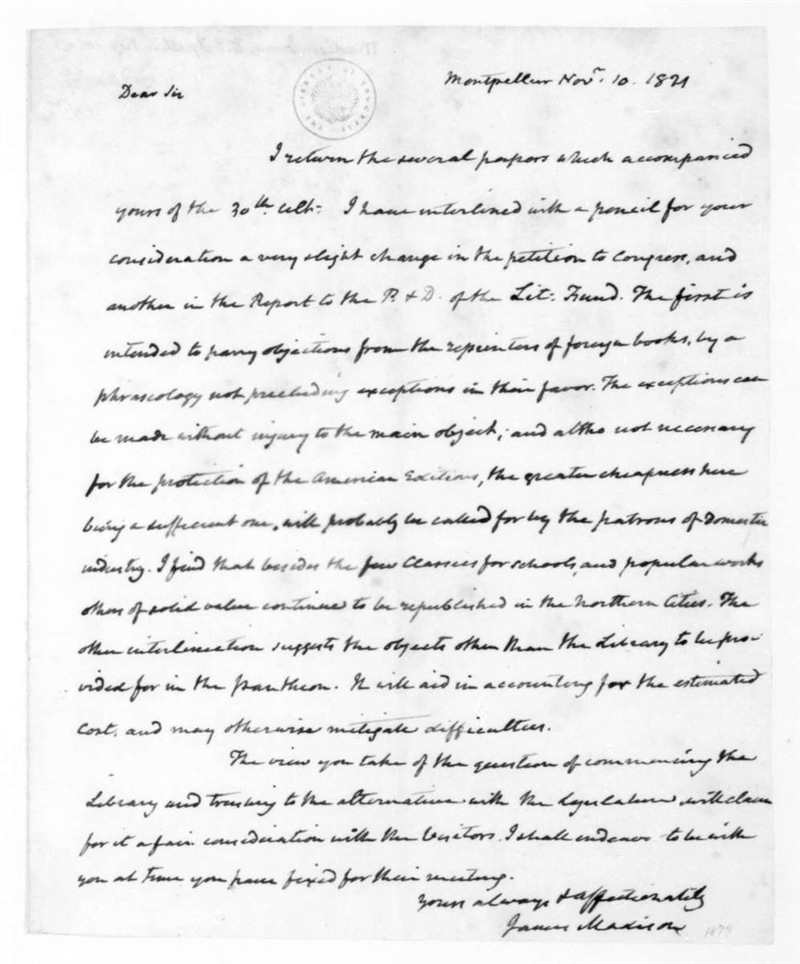 Montpellier Novr. 10. 1821
Dear Sir
I return the several papers which accompanied
yours of the 30th. ult: I have interlined with a pencil for your
consideration a very slight change in the petition to Congress, and
another in the Report to the P. & D. of the Lit: Fund. The first is
intended to parry objections from the reprinters of foreign books, by a
phraseology not precluding exceptions in their favor. The exceptions can
be made without injury to the main object; and altho not necessary
for the protection of the American Editions, the greater cheapness here
being a sufficient one, will probably be called for by the patrons of domestic
industry. I find that besides the few Classics for schools, and popular works
others of solid value continue to be republished in the Northern Cities. The
other interlineation suggests the objects other than the Library to be pro-
vided for in the Pantheon. It will aid in accounting for the estimated
cost, and may otherwise mitigate difficulties.
The view you take of the question of commencing the
Library and trusting to the alternative with the Legislature will claim
for it a fair consideration with the Visitors. I shall endeavr to be with
you at time you have fixed for their meeting.
Yours always & affectionately
James Madison